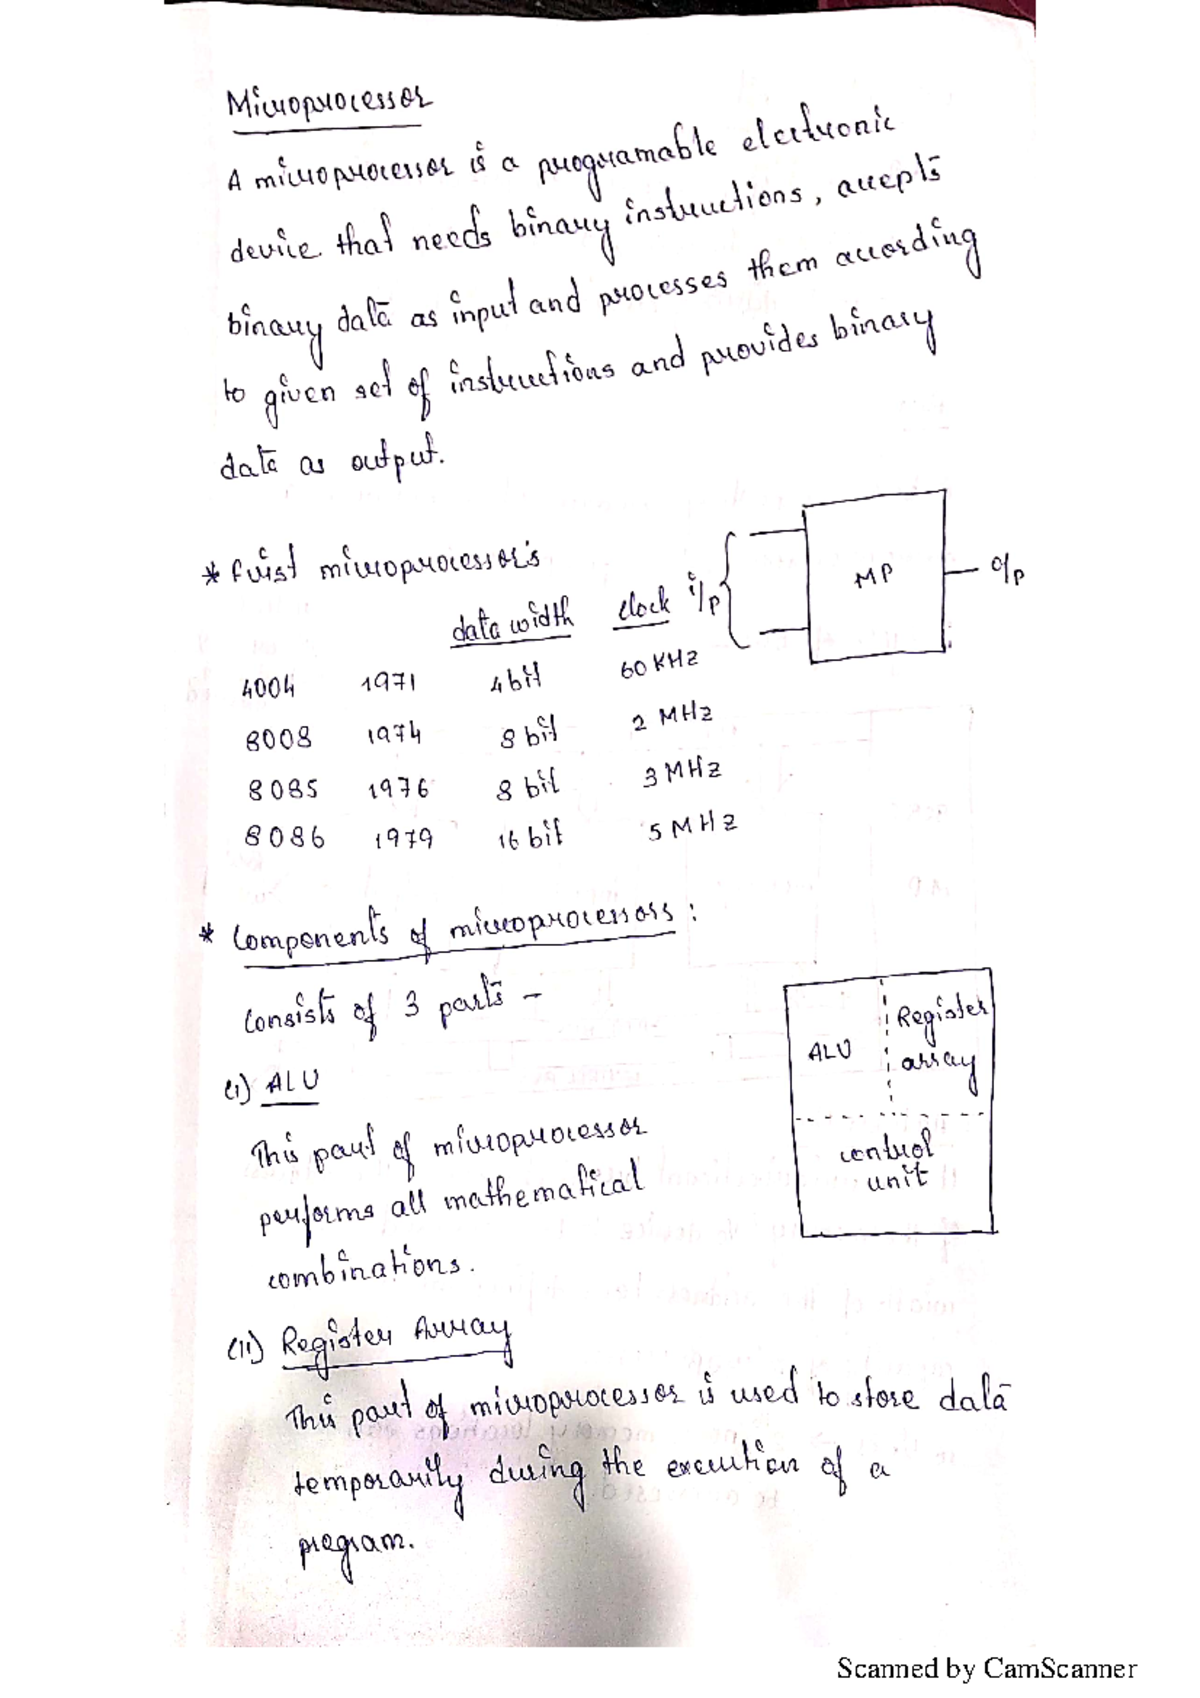 Microprocessor
A microprocessor is a programable electronic
device that needs binary instructions, accepts
binary data as input and processes them according
to given set of instructions and provides binary
data as output.
* first microprocessor's
data width clock
4004 1971 4 bit 60 KHz
8008 1974 8 bit 2 MHz
8085 1976 8 bit 3 MHz
8086 1979 16 bit 5 MHz
i/p
MP
o/p
* Components of microprocessors :
Consists of 3 parts -
(i) ALU
This part of microprocessor
performs all mathematical
combinations.
ALU
Register
array
control
unit
(ii) Register Array
This part of microprocessor is used to store data
temporarily during the execution of a
program.
Scanned by CamScanner